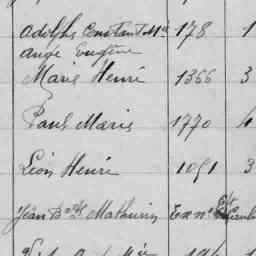 Adolphe Constant Mie 178 1
Ange Eugène
Marie Henri 1366 3
Paul Marie 1770 4
Léon Henri 1091 3
Jean Bte Mathurin Ex no